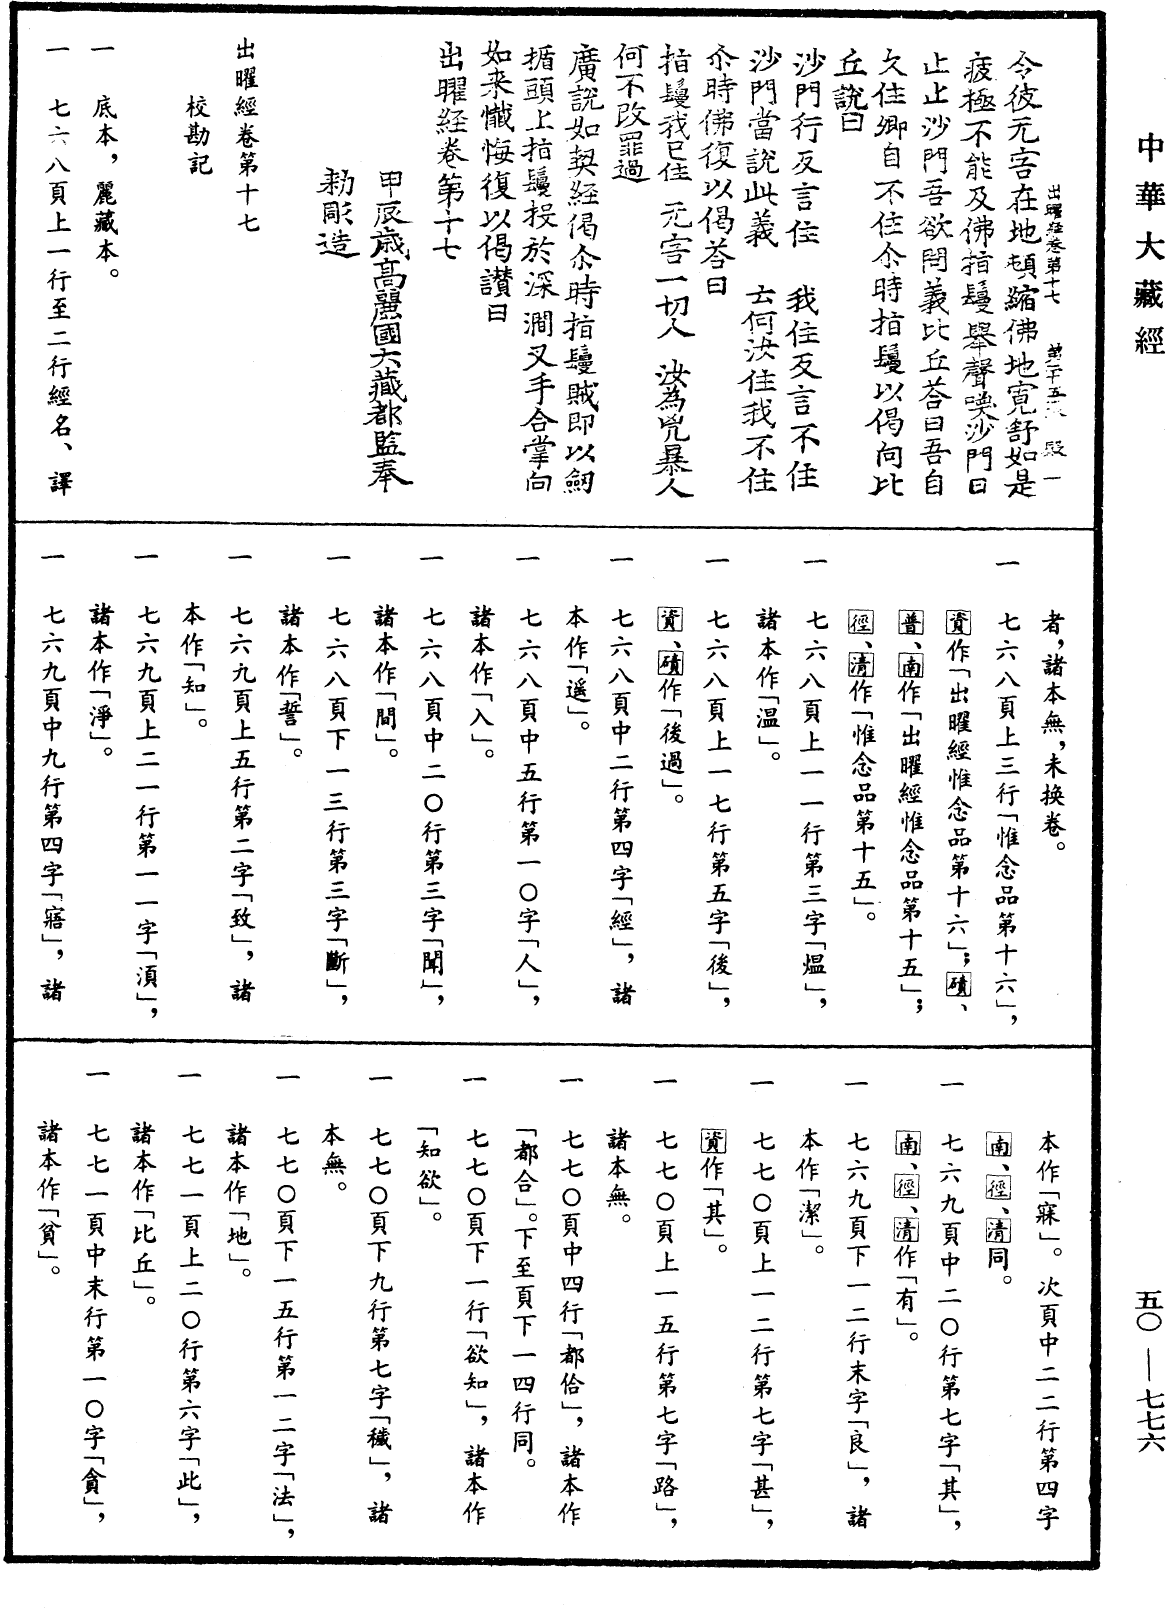 中華大藏經
出曜經卷第十七 第二十五張 殿一
今彼无害在地頓縮佛地寬舒如是
疲極不能及佛指鬘舉聲喚沙門曰
止止沙門吾欲問義比丘荅曰吾自
久住卿自不住尒時指鬘以偈向比
丘說曰
沙門行反言住 我住反言不住
沙門當說此義 云何汝住我不住
尒時佛復以偈荅曰
指鬘我已住 无害一切人 汝為兇暴人
何不改罪過
廣說如契経偈尒時指鬘賊即以劒
揗頭上指鬘投於深澗叉手合掌向
如来懺悔復以偈讃曰
出曜経卷第十七
甲辰歳高麗國大藏都監奉
勑彫造
出曜經卷第十七
校勘記
一 底本，麗藏本。
一 七六八頁上一行至二行經名、譯
者，諸本無，未换卷。
一 七六八頁上三行「惟念品第十六」，
資作「出曜經惟念品第十六」；磧、
普、南作「出曜經惟念品第十五」；
徑、清作「惟念品第十五」。
一 七六八頁上一一行第三字「熅」，
諸本作「温」。
一 七六八頁上一七行第五字「後」，
資、磧作「後過」。
一 七六八頁中二行第四字「經」，諸
本作「遥」。
一 七六八頁中五行第一〇字「人」，
諸本作「入」。
一 七六八頁中二〇行第三字「聞」，
諸本作「間」。
一 七六八頁下一三行第三字「斷」，
諸本作「誓」。
一 七六九頁上五行第二字「致」，諸
本作「知」。
一 七六九頁上二一行第一一字「湏」，
諸本作「淨」。
一 七六九頁中九行第四字「寤」，諸
本作「寐」。次頁中二二行第四字
南、徑、清同。
一 七六九頁中二〇行第七字「其」，
南、徑、清作「有」。
一 七六九頁下一二行末字「良」，諸
本作「潔」。
一 七七〇頁上一二行第七字「甚」，
資作「其」。
一 七七〇頁上一五行第七字「路」，
諸本無。
一 七七〇頁中四行「都佮」，諸本作
「都合」。下至頁下一四行同。
一 七七〇頁下一行「欲知」，諸本作
「知欲」。
一 七七〇頁下九行第七字「穢」，諸
本無。
一 七七〇頁下一五行第一二字「法」，
諸本作「地」。
一 七七一頁上二〇行第六字「此」，
諸本作「比丘」。
一 七七一頁中末行第一〇字「貪」，
諸本作「貧」。
五〇—七七六